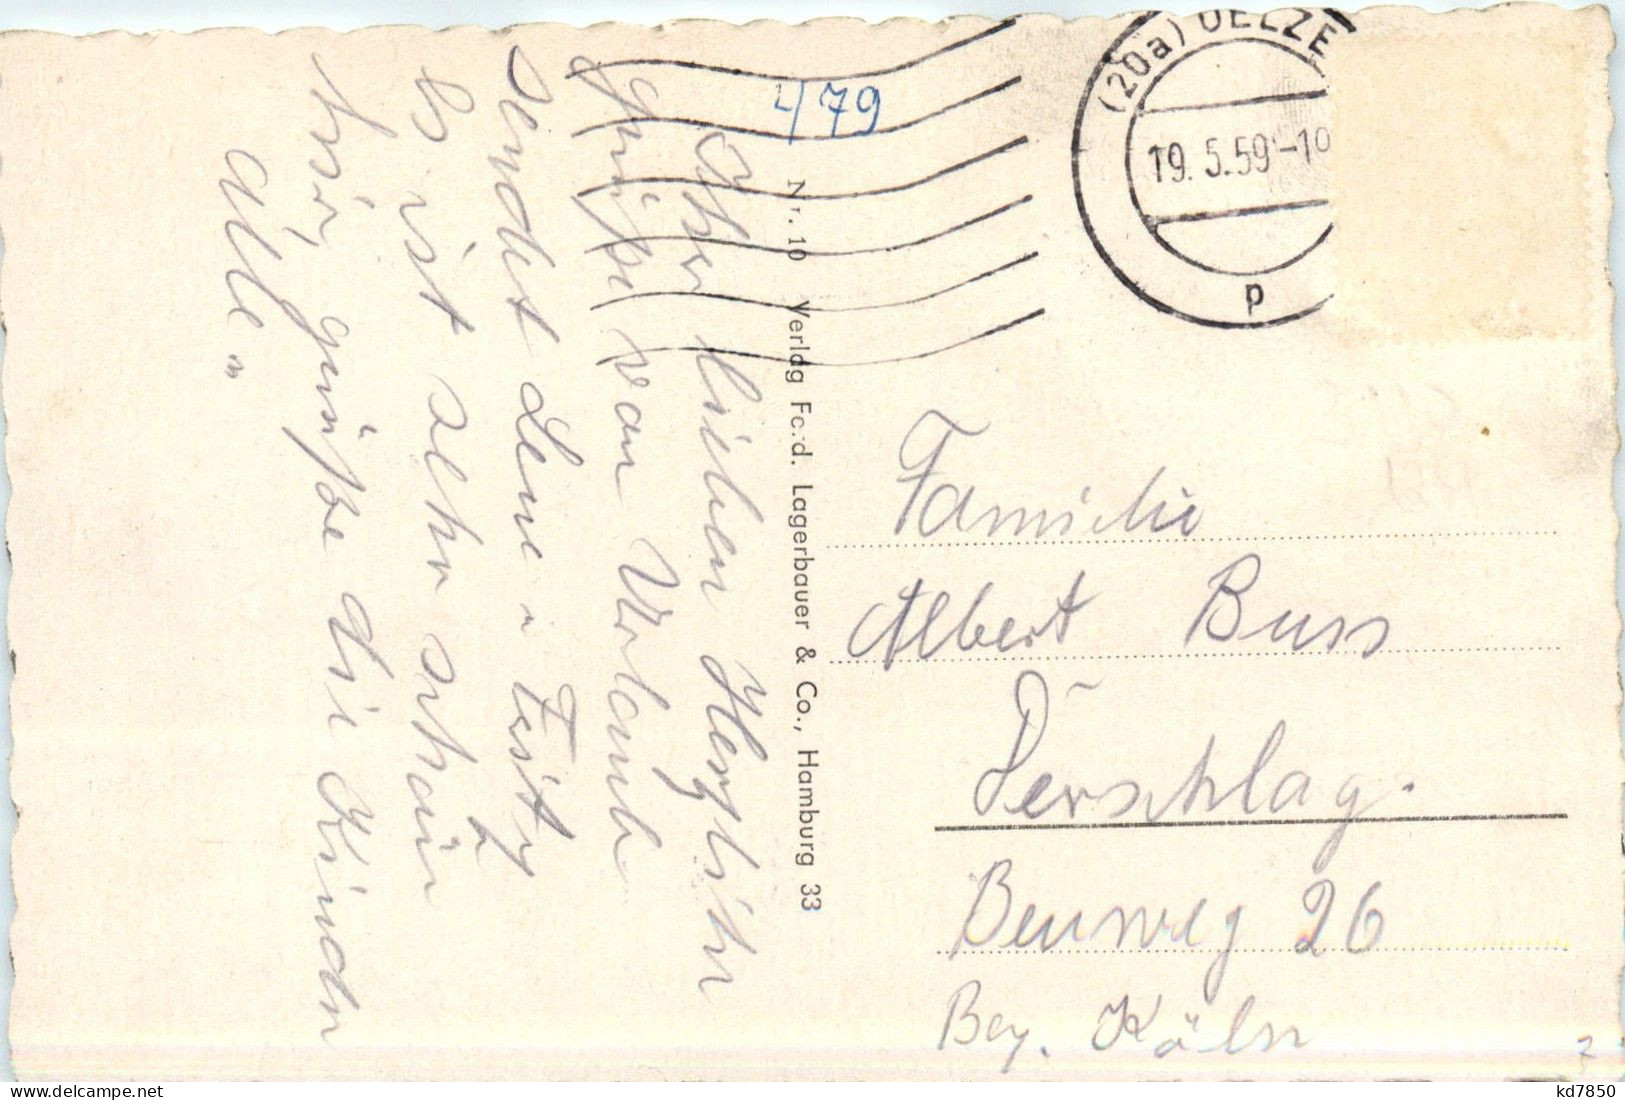 4/79
(20a) UELZE
19.5.59-10
p
Ihr lieben Herzliche
Grüße von Urlaub
sendet Lene u Fritz
Es ist sehr schön
hier, grüße die Kinder
Alle
Nr. 10 Verlag Ferd. Lagerbauer & Co., Hamburg 33
Familie
Albert Buss
Derschlag.
26
Bez. Köln
kd7850